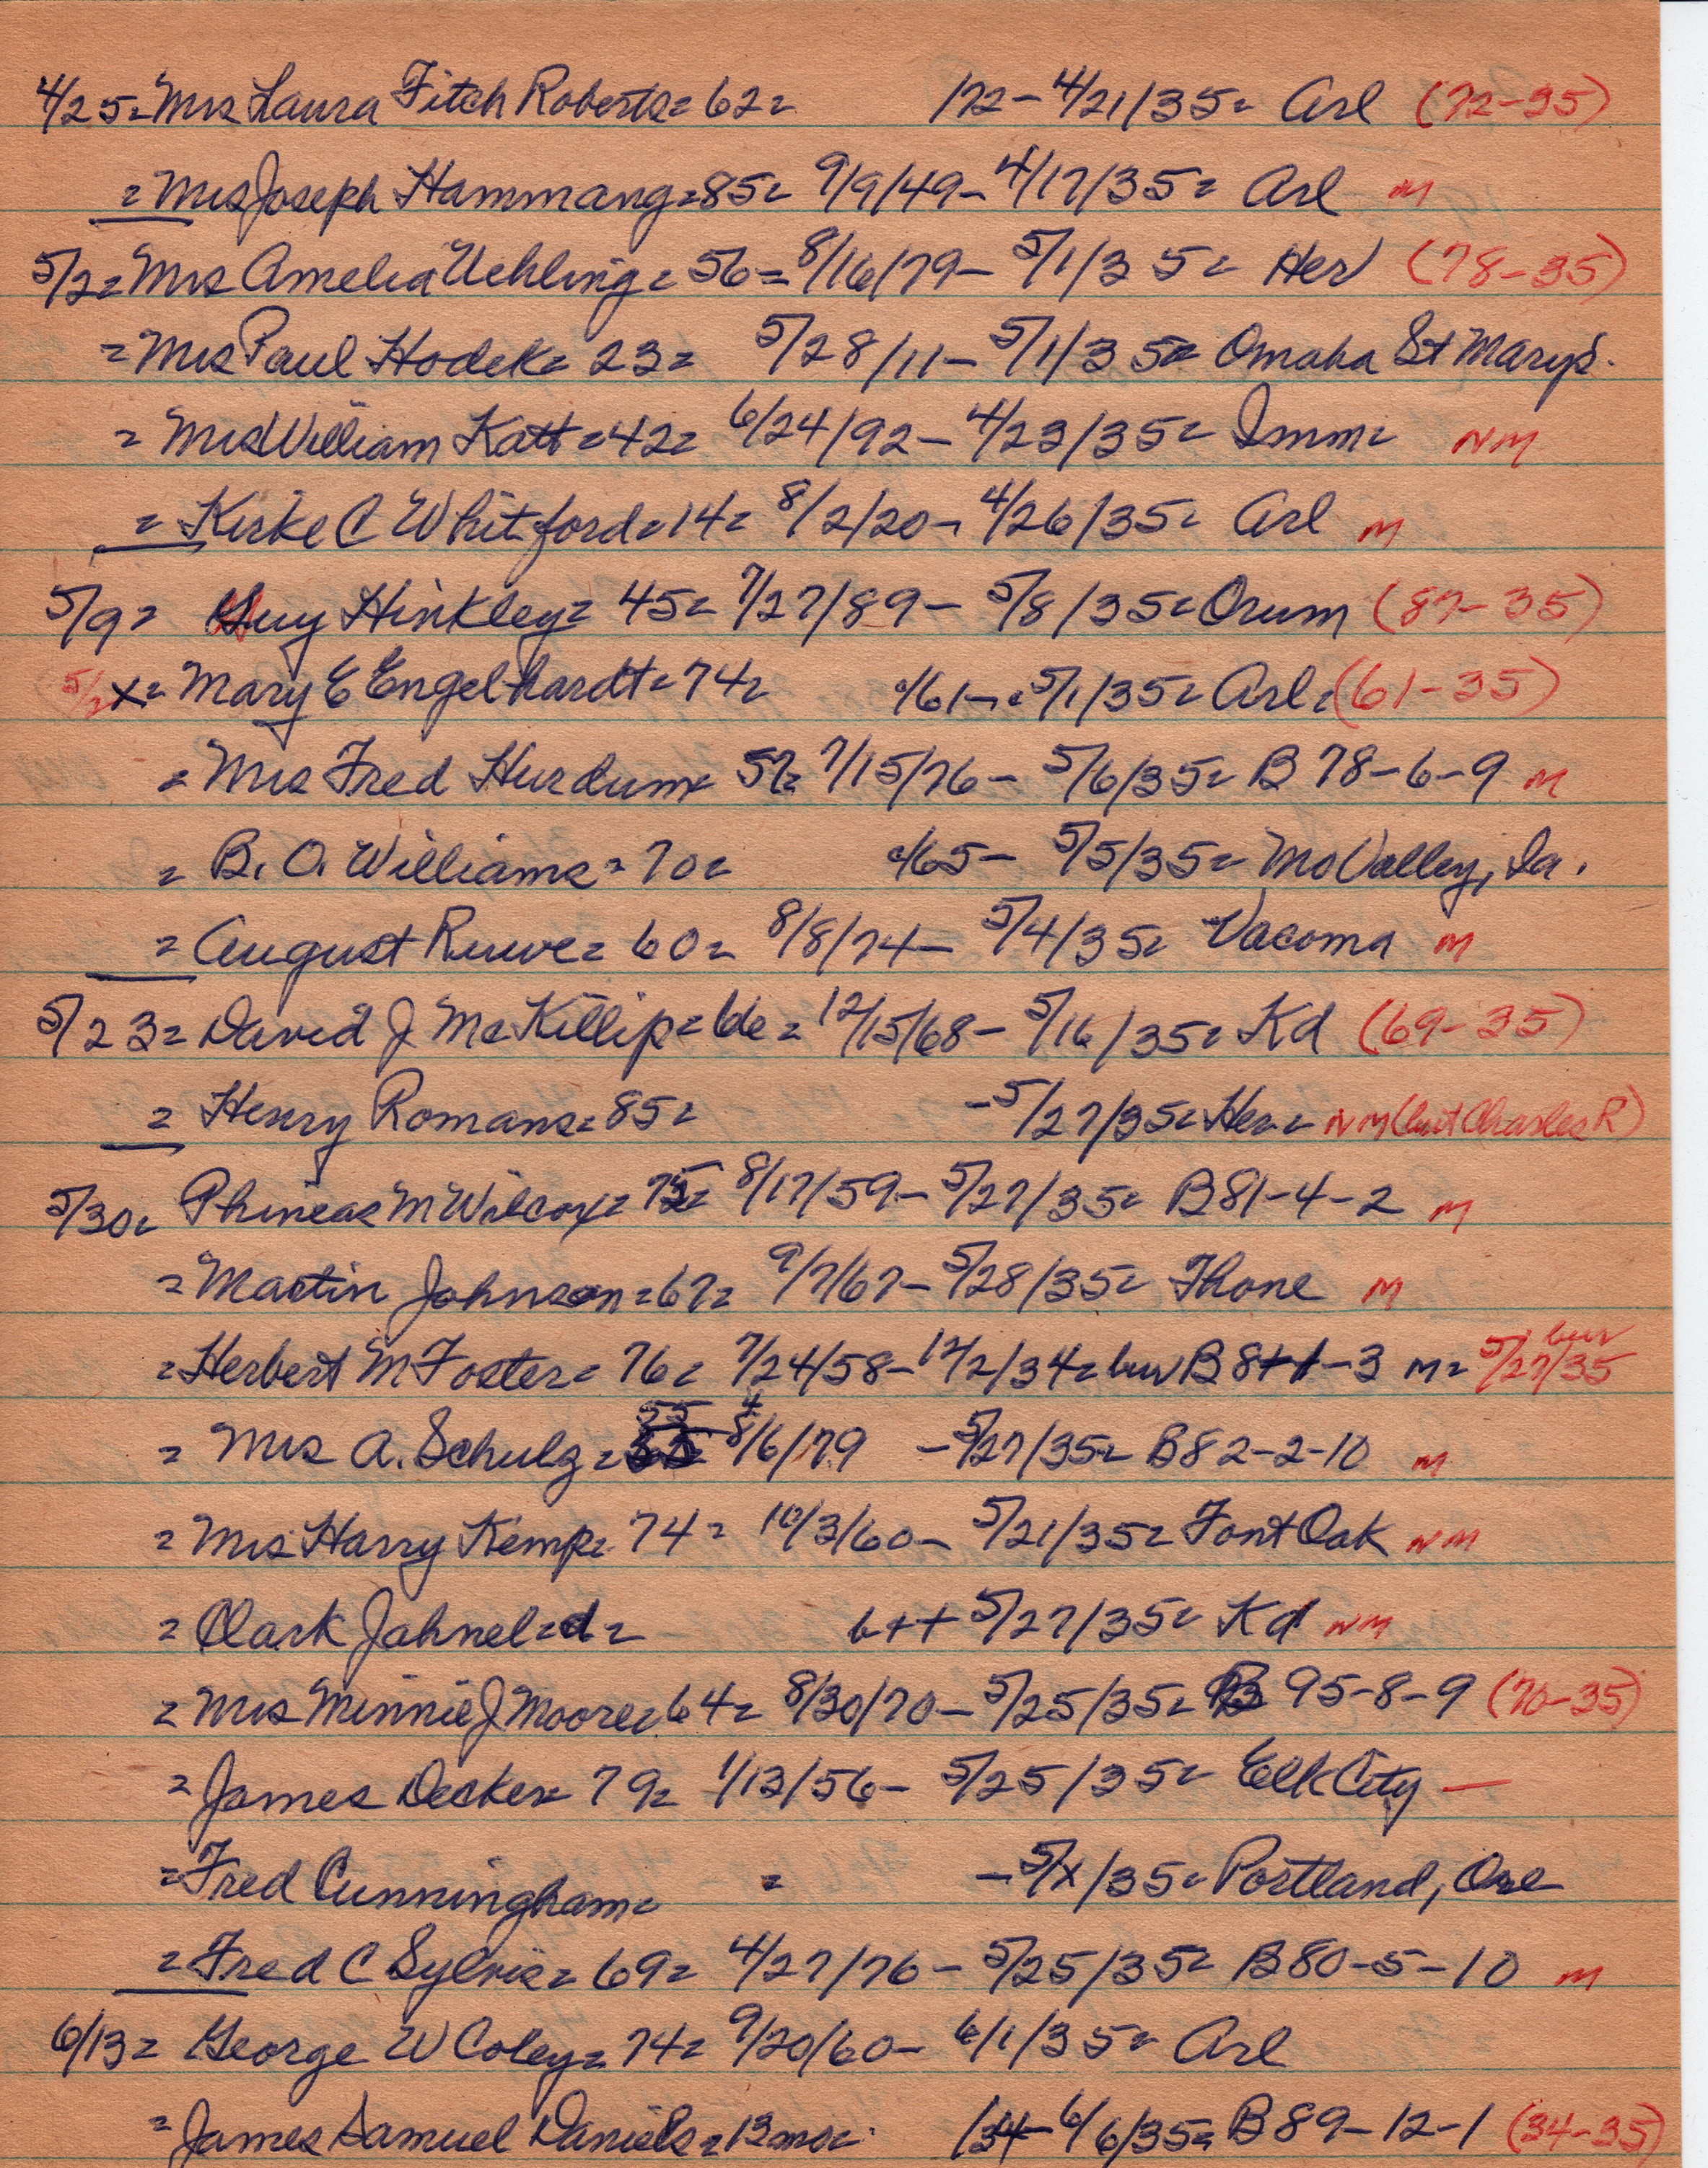 4/25= Mrs Laura Fitch Roberts= 62= /72- 4/21/35= Arl (72-35)
= Mrs Joseph Hammang=85= 9/9/49- 4/17/35= Arl M
5/2= Mrs Amelia Uehling= 56= 8/16/79- 5/1/35= Her (78-35)
= Mrs Paul Hodek= 23= 5/28/11- 5/1/35= Omaha St Marys.
= Mrs William Katt=42= 6/24/92- 4/23/35= Imm= NM
= Kirke C Whitford=14= 8/2/20- 4/26/35= Arl M
5/9= Guy Hinkley= 45= 7/27/89- 5/8/35= Orum (87-35)
5/2 x= Mary E Engelhardt=74= c/61- 5/1/35= Arl= (61-35)
= Mrs Fred Hurdum= 57= 7/15/76- 5/6/35= B 78-6-9 M
= B. O. Williams= 70= c/65- 5/5/35= Mo Valley, Ia.
= August Ruwe= 60= 8/8/74- 5/4/35= Vacoma M
5/23= David J McKillip= 66= 12/15/68- 5/16/35= Kd (69-35)
= Henry Romans=85= -5/27/35= Her= NM (but Charles R)
5/30= Phineas M Wilcox= 75= 8/17/59- 5/27/35= B81-4-2 M
= Martin Johnson=67= 9/7/67- 5/28/35= Thone M
= Herbert M Foster= 76= 7/24/58- 12/2/34= bur B 8 -3 M= bur 5/27/35
= Mrs A. Schulz= 55 /6/79 -5/27/35= B82-2-10 M
= Mrs Harry Kemp= 74= 10/3/60- 5/21/35= Font Oak NM
= Clark Jahnel=d= b++ 5/27/35= Kd NM
= Mrs Minnie J Moore=64= 8/30/70- 5/25/35= B 95-8-9 (70-35)
= James Decker= 79= 1/13/56- 5/25/35= Elk City —
= Fred Cunningham= = -5/x/35= Portland, Ore
= Fred C Sylvis= 69= 4/27/76- 5/25/35= B80-5-10 M
6/13= George W Coley= 74= 9/20/60- 6/1/35= Arl
= James Samuel Daniels=13mo= /34- 6/6/35= B89-12-1 (34-35)